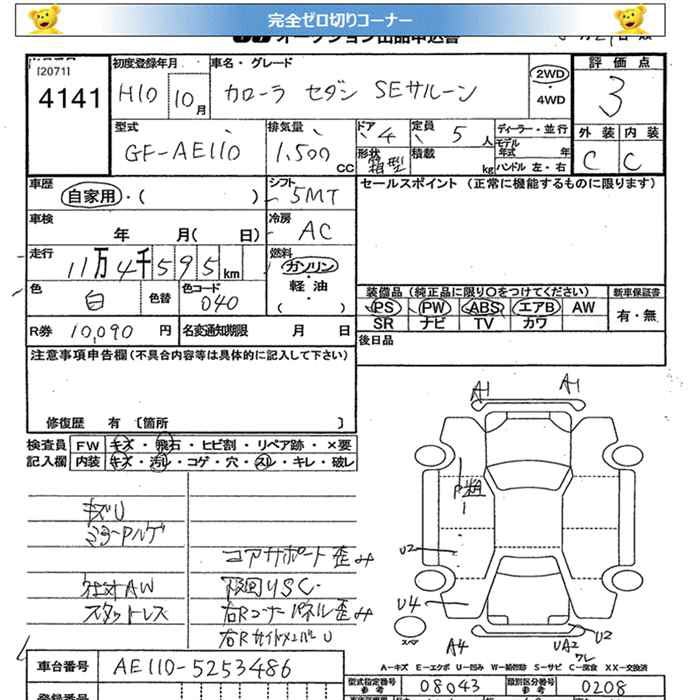 完全ゼロ切りコーナー
オークション出品申込書
[2071]
4141
初度登録年月 車名・グレード 評価点
H10 10月 カローラ セダン SEサルーン 2WD・4WD 3
型式 排気量 ドア 定員 ディーラー・並行 外装 内装
GF-AE110 1,500CC 4 5人 モデル年式 年 C C
形状 箱型 積載 kg ハンドル 左・右
車歴 シフト セールスポイント (正常に機能するものに限ります)
自家用・( ) 5MT
車検 年 月( 日) 冷房 AC
走行 11万4千595km 燃料 ガソリン・軽油・( )
色 白 色替 色コード 040
装備品(純正品に限り○をつけてください) 新車保証書
PS PW ABS エアB AW 有・無
SR ナビ TV カワ
R券 10,090円 名変通知期限 月 日
後日品
注意事項申告欄(不具合内容等は具体的に記入して下さい)
修復歴 有 [箇所 ]
検査員 FW キズ・飛石・ヒビ割・リペア跡・×要
記入欄 内装 キズ・汚レ・コゲ・穴・スレ・キレ・破レ
A-1 A-1
キズU
ミラーハルゲ
P粗
1
U2
コアサポート歪み
社外AW
スタットレス
右Rコーナーパネル歪み
右RサイドメンバーU
U4
スペア
A4
UA2
U2
ワレ
A-キズ E-エクボ U-凹み W-補修跡 S-サビ C-腐食 XX-交換済
車台番号 AE110-5253486
型式指定番号 参考 08043 類別区分番号 参考 0208
登録番号